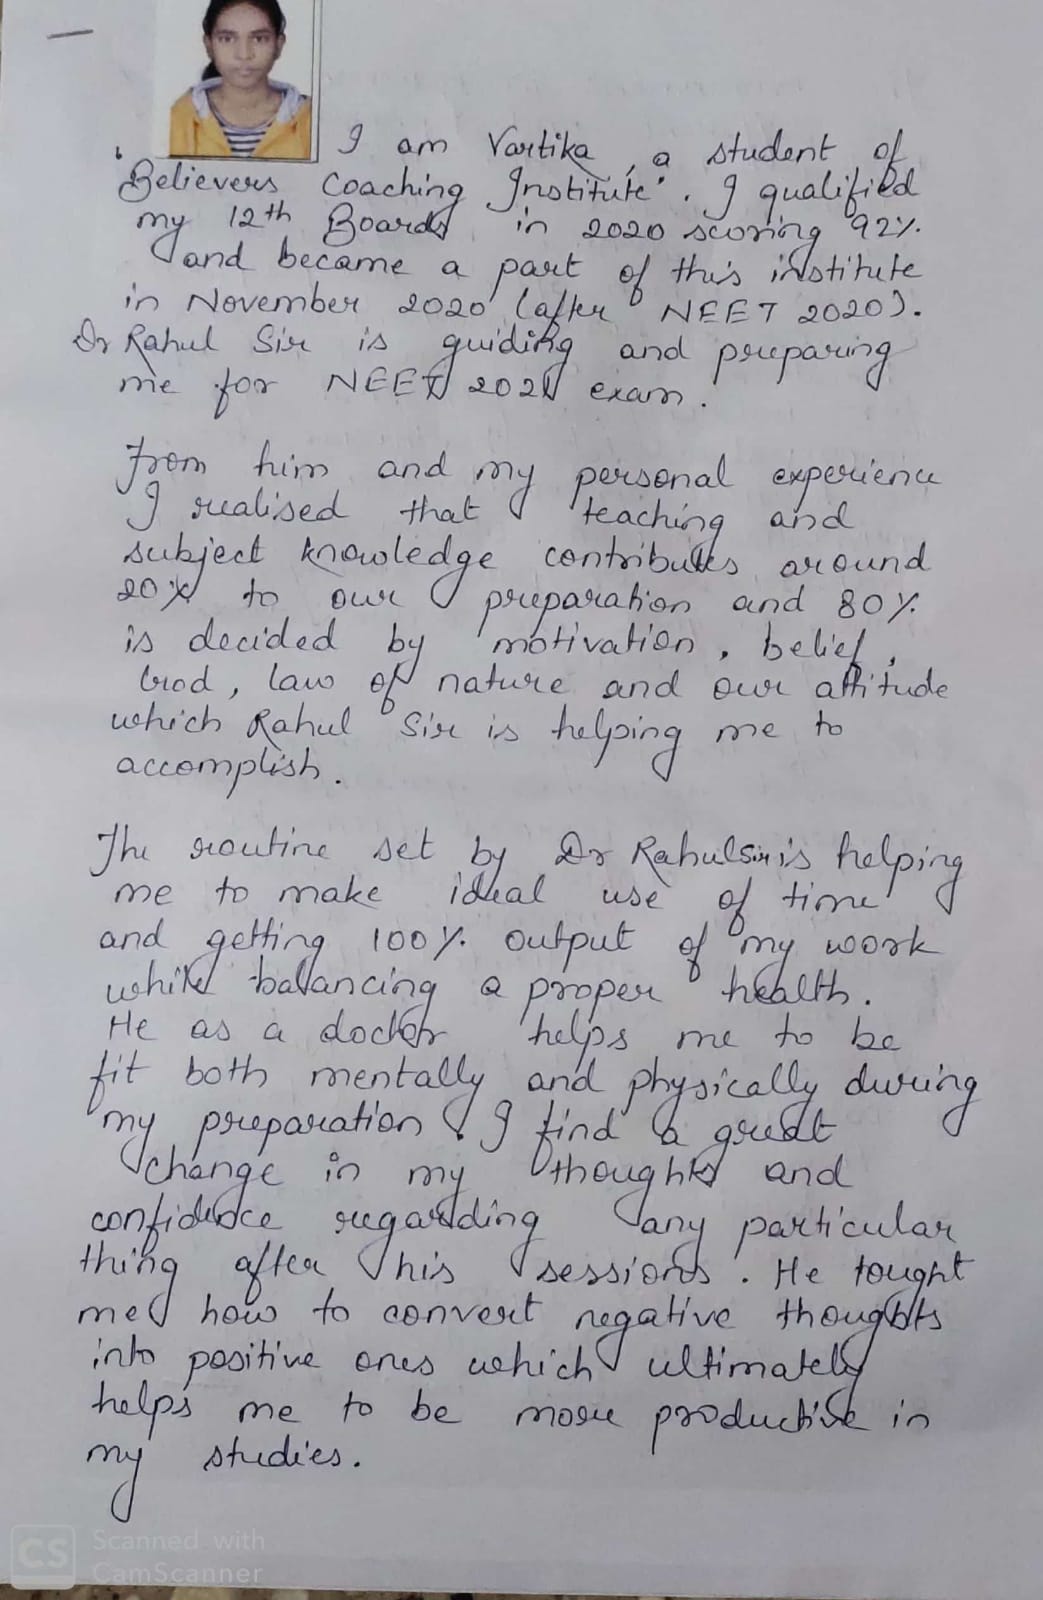 I am Vartika, a student of
'Believers Coaching Institute'. I qualified
my 12th Boards in 2020 scoring 92%
and became a part of this institute
in November 2020 (after NEET 2020).
Dr Rahul Sir is guiding and preparing
me for NEET 2021 exam.
From him and my personal experience
I realised that teaching and
subject knowledge contributes around
20% to our preparation and 80%
is decided by motivation, belief,
God, law of nature and our attitude
which Rahul Sir is helping me to
accomplish.
The routine set by Dr Rahul Sir is helping
me to make ideal use of time
and getting 100% output of my work
while balancing a proper health.
He as a doctor helps me to be
fit both mentally and physically during
my preparation. I find a great
change in my thoughts and
confidence regarding any particular
thing after his sessions. He tought
me how to convert negative thoughts
into positive ones which ultimately
helps me to be more productive in
my studies.
CS Scanned with
CamScanner